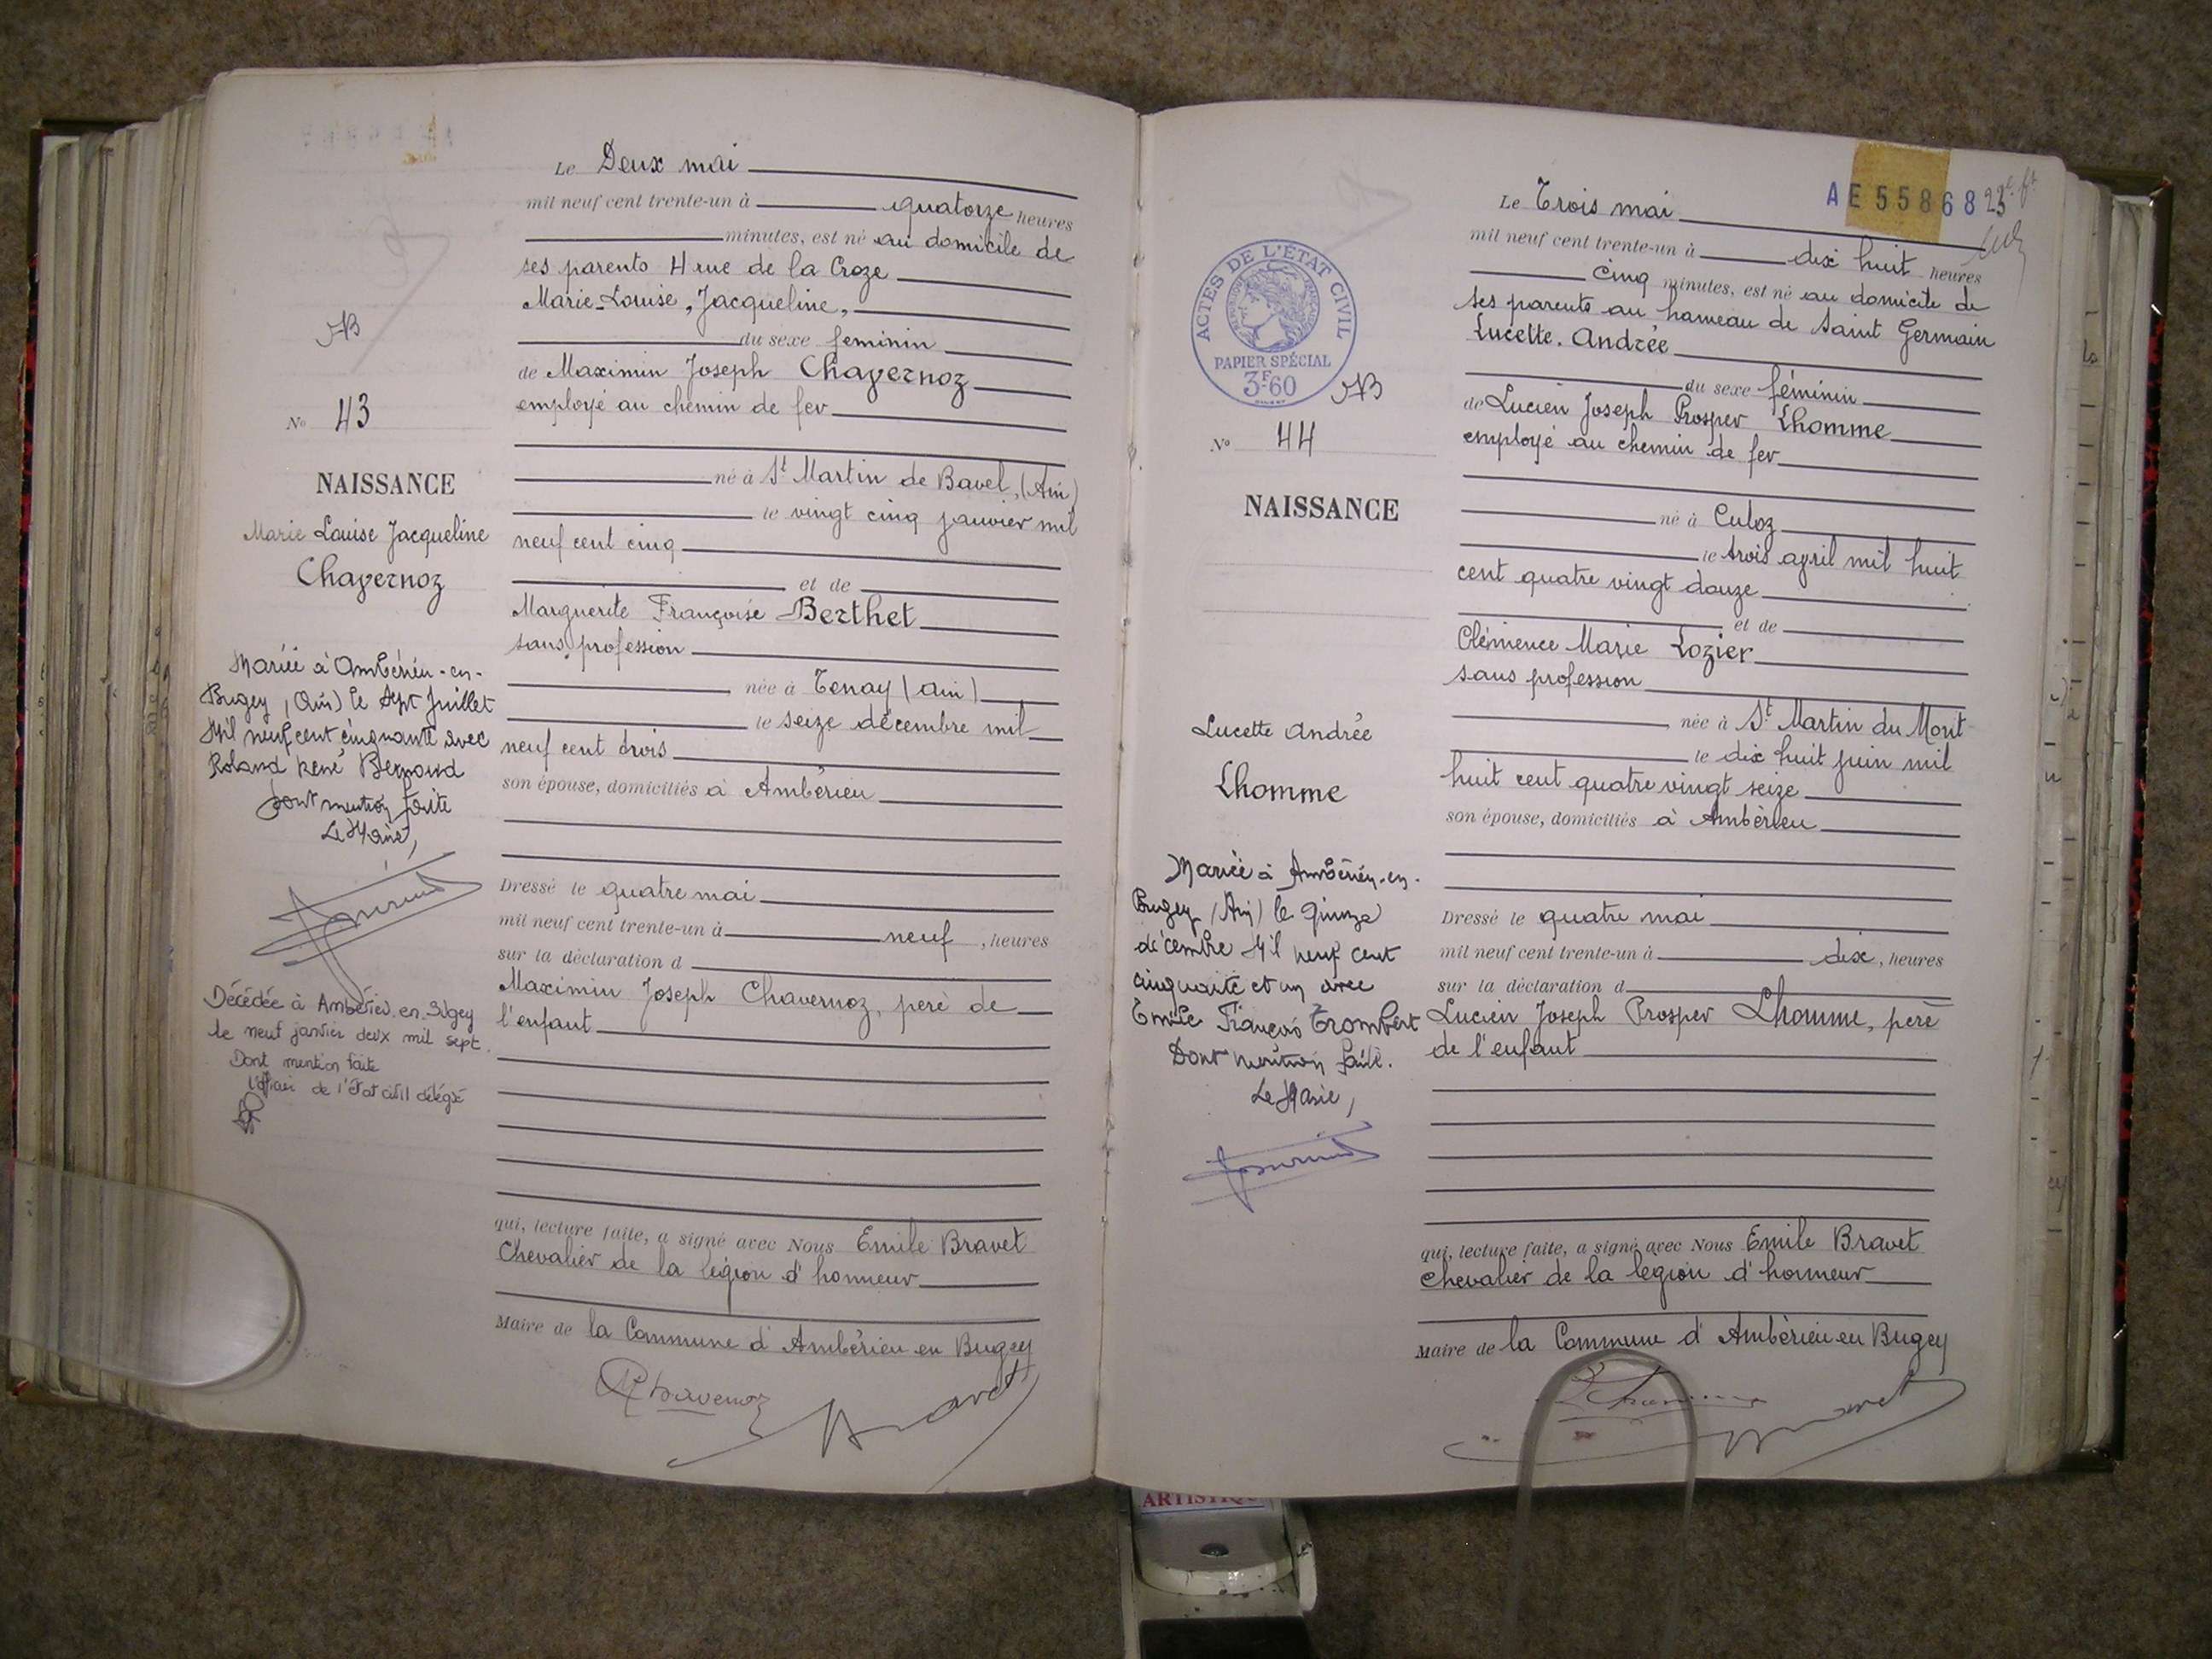 Le Deux mai
mil neuf cent trente-un à quatorze heures
minutes, est né au domicile de
ses parents 4 rue de la Croze
Marie-Louise, Jacqueline,
du sexe feminin
de Maximin Joseph Chavernoz
employé au chemin de fer
né à St Martin de Bavel, (Ain)
le vingt cinq janvier mil
neuf cent cinq
et de
Marguerite Françoise Berthet
sans profession
née à Tenay (Ain)
le seize décembre mil
neuf cent trois
son épouse, domiciliés à Ambérieu
Dressé le quatre mai
mil neuf cent trente-un à neuf, heures
sur la déclaration d
Maximin Joseph Chavernoz, père de
l'enfant
qui, lecture faite, a signé avec Nous Emile Bravet
Chevalier de la légion d'honneur
Maire de la Commune d'Ambérieu en Bugey
Chavernoz
Bravet
No 43
NAISSANCE
Marie Louise Jacqueline
Chavernoz
Mariée à Ambérieu-en-
Bugey, (Ain) le sept Juillet
Mil neuf cent cinquante avec
Roland René
dont mention faite
Le Maire,
Décédée à Ambérieu.en.Bugey
le neuf janvier deux mil sept.
Dont mention faite
de l'état civil délégué
AE55868
Le Trois mai
mil neuf cent trente-un à dix huit heures
cinq minutes, est né au domicile de
ses parents au hameau de Saint Germain
Lucette. Andrée
du sexe féminin
de Lucien Joseph Prosper Lhomme
employé au chemin de fer
né à Culoz
le trois avril mil huit
cent quatre vingt douze
et de
Clémence Marie Lozier
sans profession
née à St Martin du Mont
le dix huit juin mil
huit cent quatre vingt seize
son épouse, domiciliés à Ambérieu
Dressé le quatre mai
mil neuf cent trente-un à dix, heures
sur la déclaration d
Lucien Joseph Prosper Lhomme, père
de l'enfant
qui, lecture faite, a signé avec Nous Emile Bravet
chevalier de la légion d'honneur
Maire de la Commune d'Ambérieu en Bugey
ACTES DE L'ÉTAT CIVIL
PAPIER SPÉCIAL
3F60
No 44
NAISSANCE
Lucette Andrée
Lhomme
Mariée à Ambérieu-en-
Bugey (Ain) le quinze
décembre Mil neuf cent
cinquante et un avec
Emile François Trombert
Dont mention faite.
Le Maire,
ARTISTIQUE